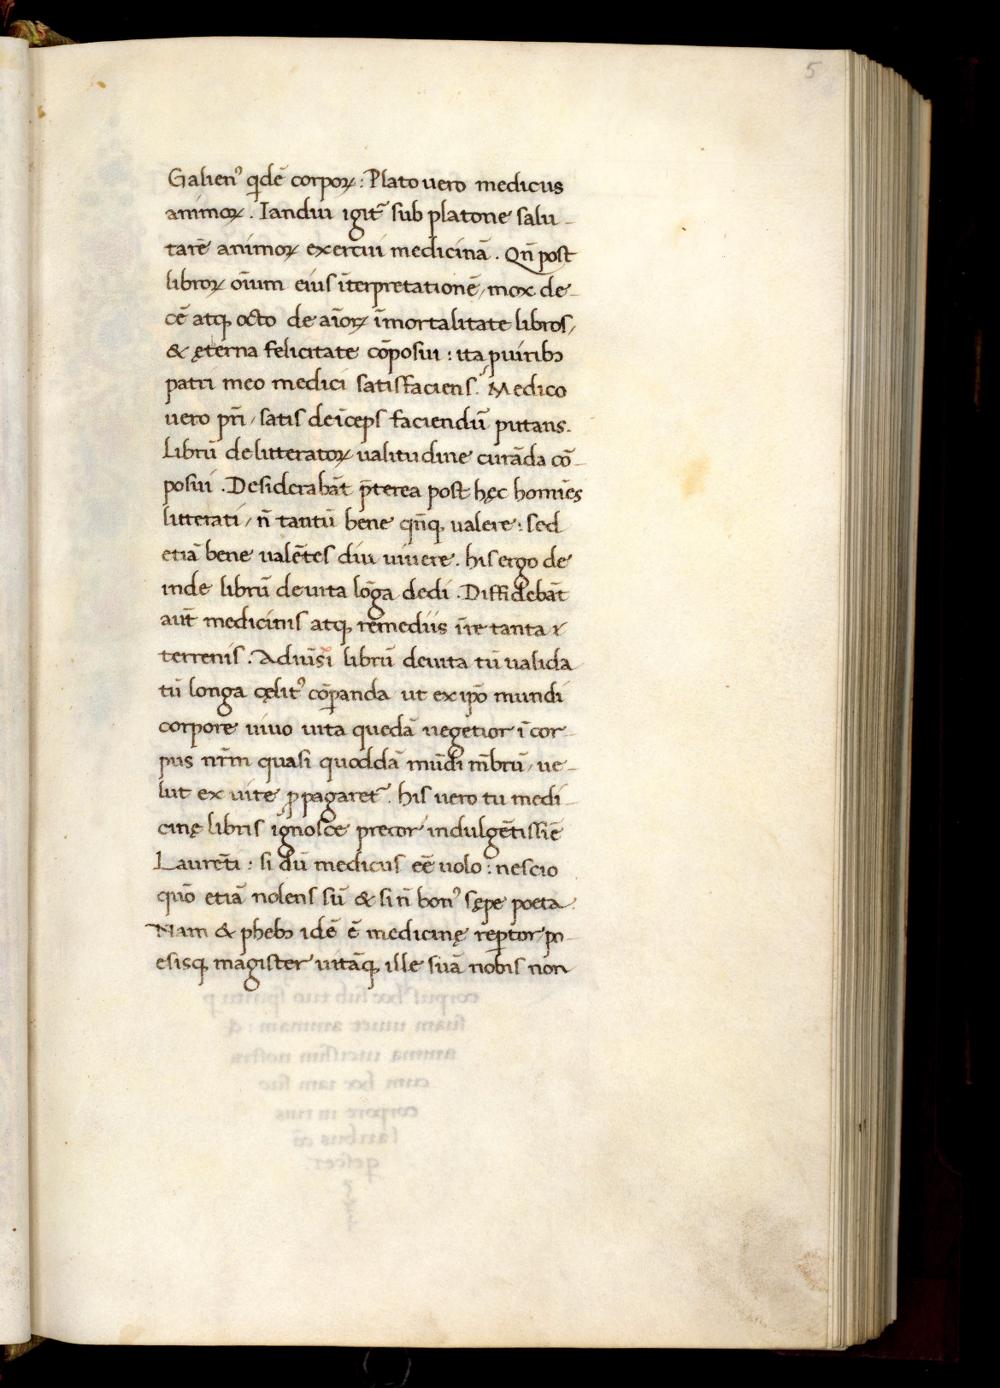 5
Galienꝰ qdē corpoꝝ : Plato uero medicus
animoꝝ . Iandiu igit᷑ sub platone salu-
tarē animoꝝ exercui medicinā . Qn̄ post
libroꝝ oīum eius īterpretationē, mox de-
cē atq; octo de aīoꝝ īmortalitate libros,
& ęterna felicitate cōposui : ita ꝓ uiribꝫ
patri meo medici satisfaciens. Medico
uero pr̄i, satis deīceps faciendū putans.
Librū de litteratoꝝ ualitudine curāda cō-
posui . Desiderabāt p̄terea post hęc homīes
litterati, n̄ tantū bene qn̄q; ualere : sed
etiā bene ualētes diu uiuere. his ergo de
inde librū de uita lōga dedi . Diffidebāt
aūt medicinis atq; remediis ī re tanta &
terrenis . Adiūsi librū de uita tū ualida
tū longa cęlitꝰ cōpanda ut ex ip̄o mundi
corpore uiuo uita quedā uegetior ī cor-
pus nr̄m quasi quoddā mūdi mb̄rū, ue-
lut ex uite ꝓpagaret᷑ . his uero tu medi-
cinę libris ignosce precor indulgētissīe
Laurēti : si dū medicus eē uolo : nescio
quō etiā nolens sū & si n̄ bonꝰ sępe poeta.
Nam & phebꝫ idē ē medicinę reptor, po-
esisq; magister uitāq; ille suā nobis non